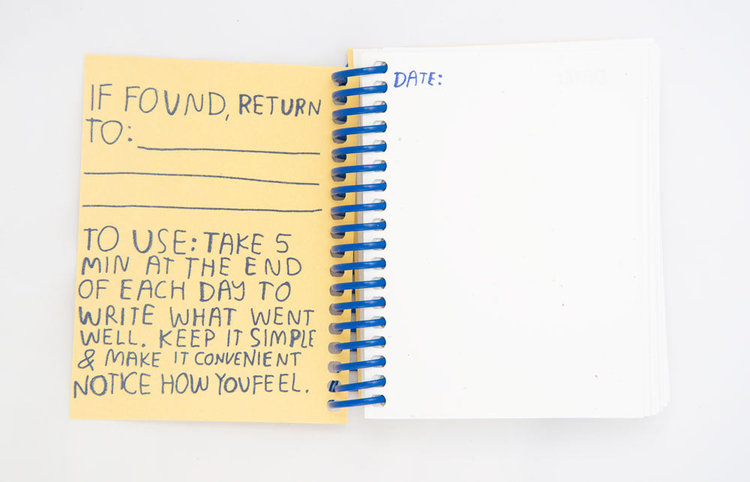 IF FOUND, RETURN
TO:
TO USE: TAKE 5
MIN AT THE END
OF EACH DAY TO
WRITE WHAT WENT
WELL. KEEP IT SIMPLE
& MAKE IT CONVENIENT
NOTICE HOW YOU FEEL.
DATE: